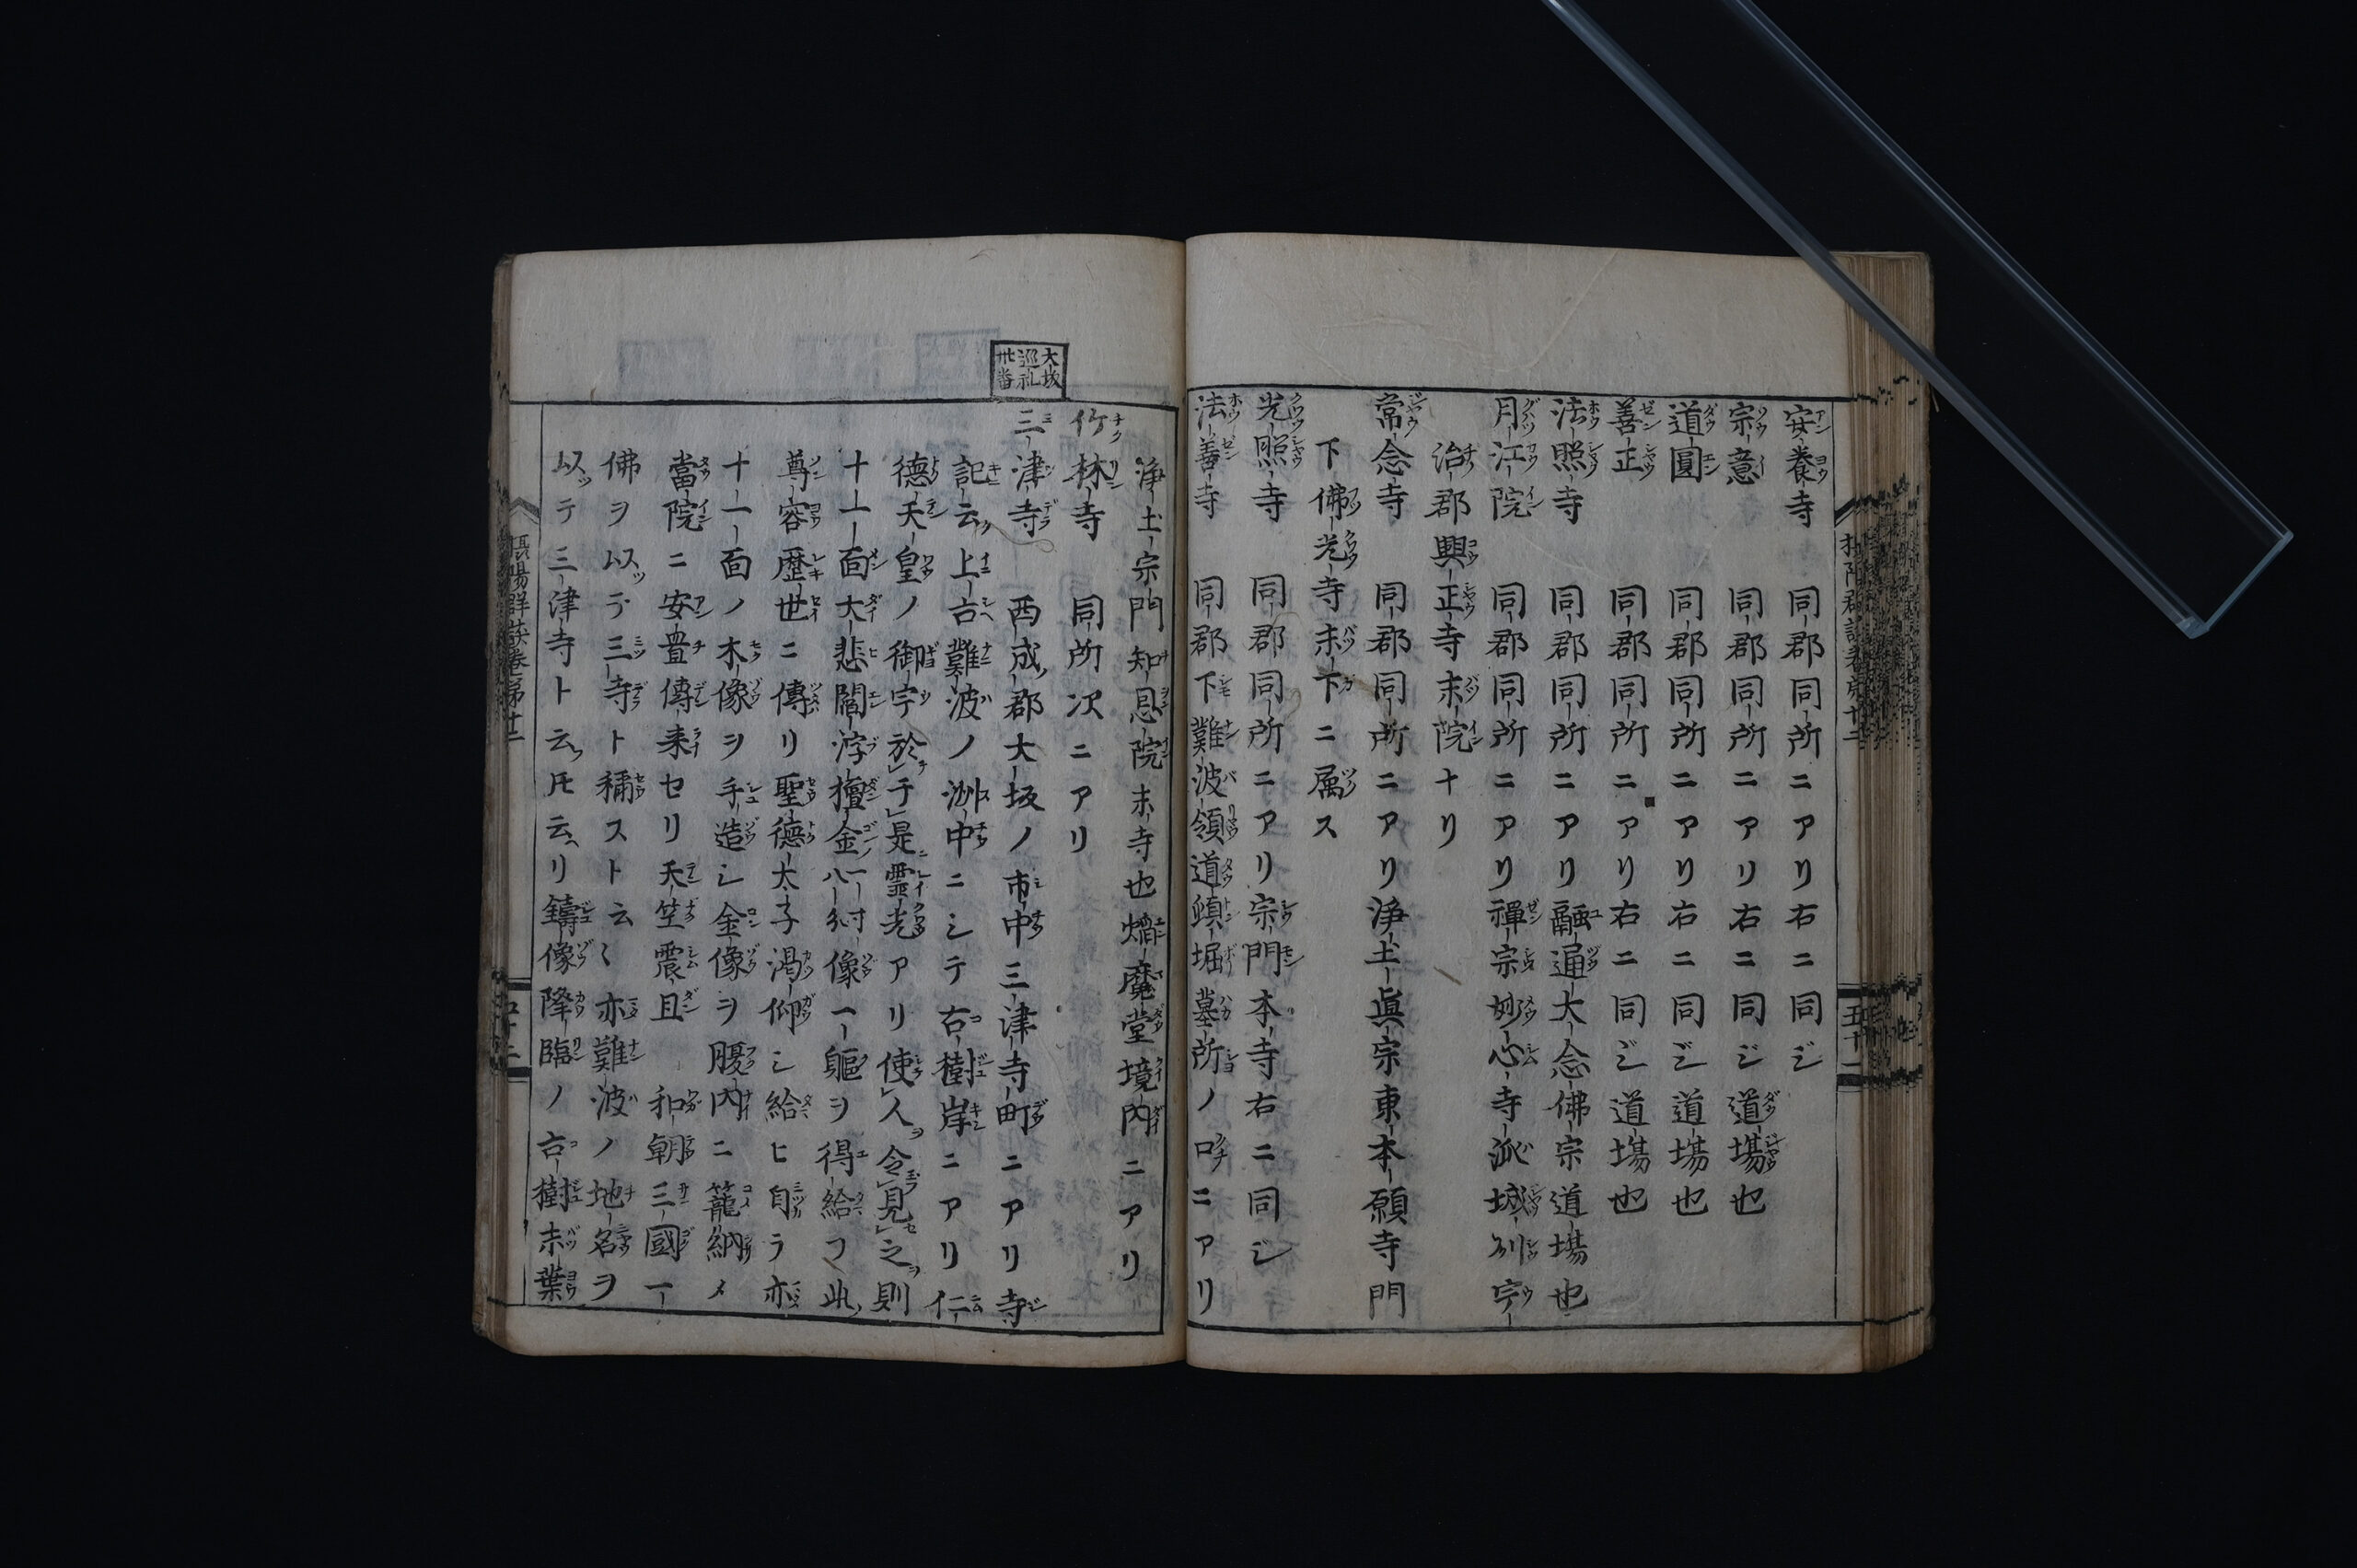 安養寺 同郡同所ニアリ右ニ同ジ
宗意 同郡同所ニアリ右ニ同ジ道場也
道圓 同郡同所ニアリ右ニ同ジ道場也
善正 同郡同所ニアリ右ニ同ジ道場也
法照寺 同郡同所ニアリ融通大念佛宗道場也
月江院 同郡同所ニアリ禪宗妙心寺派城州宇
治郡興正寺末院ナリ
常念寺 同郡同所ニアリ浄土眞宗東本願寺門
下佛光寺末下ニ属ス
光照寺 同郡同所ニアリ宗門本寺右ニ同シ
法善寺 同郡下難波領道頓堀墓所ノ口ニアリ
浄土宗門知恩院末寺也熖魔堂境内ニアリ
竹林寺 同所次ニアリ
大坂
巡礼
卅番
三津寺 西成郡大坂ノ市中三津寺町ニアリ寺
記云上古難波ノ洲中ニシテ古樹岸ニアリ仁
德天皇ノ御宇於于是靈光アリ使人令見之則
十一面大悲閻浮檀金一寸八分像一軀ヲ得給フ此
尊容歴世ニ傳リ聖德太子渇仰シ給ヒ自ラ亦
十一面ノ木像ヲ手造シ金像ヲ腹内ニ籠納メ
當院ニ安置傳来セリ天竺震旦和朝三國一
佛ヲ以テ三寺ト稱スト云〻亦難波ノ地名ヲ
以テ三津寺ト云フ𪜈云ヘリ鑄像降臨ノ古樹末葉
五十一